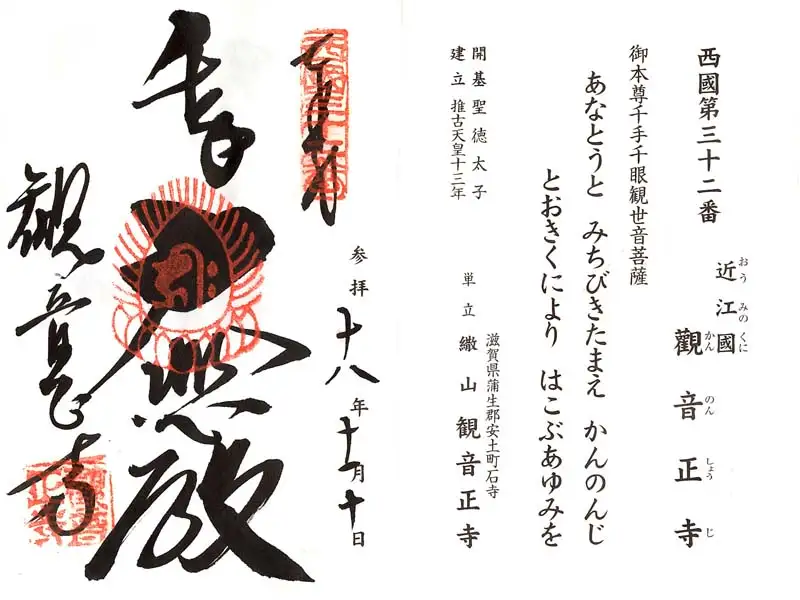 西國第三十二番
近江國
おうみのくに
觀音正寺
かんのんしょうじ
御本尊千手千眼観世音菩薩
あなとうと みちびきたまえ かんのんじ
とおきくにより はこぶあゆみを
開基 聖徳太子
建立 推古天皇十三年
滋賀県蒲生郡安土町石寺
単立 繖山 観音正寺
参拝 十八年十一月十日
観音正寺